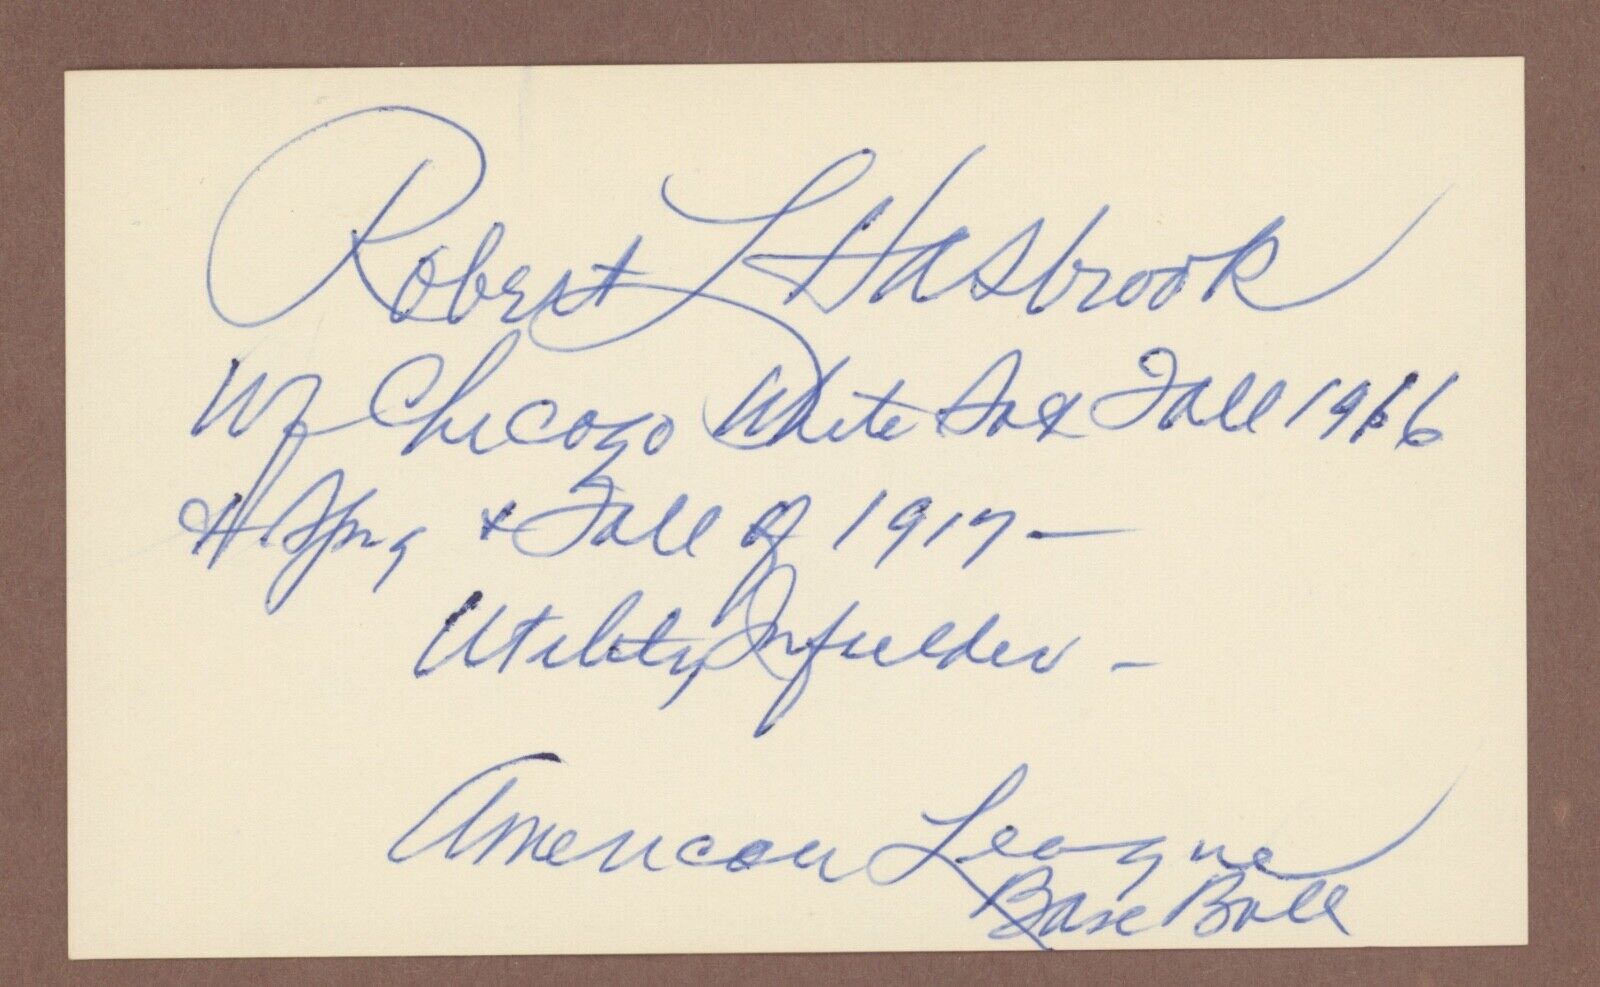 Robert L Hasbrook
W/ Chicago White Sox Fall 1916
Spng & Fall of 1917 —
Utility Infielder —
American League
Base Ball